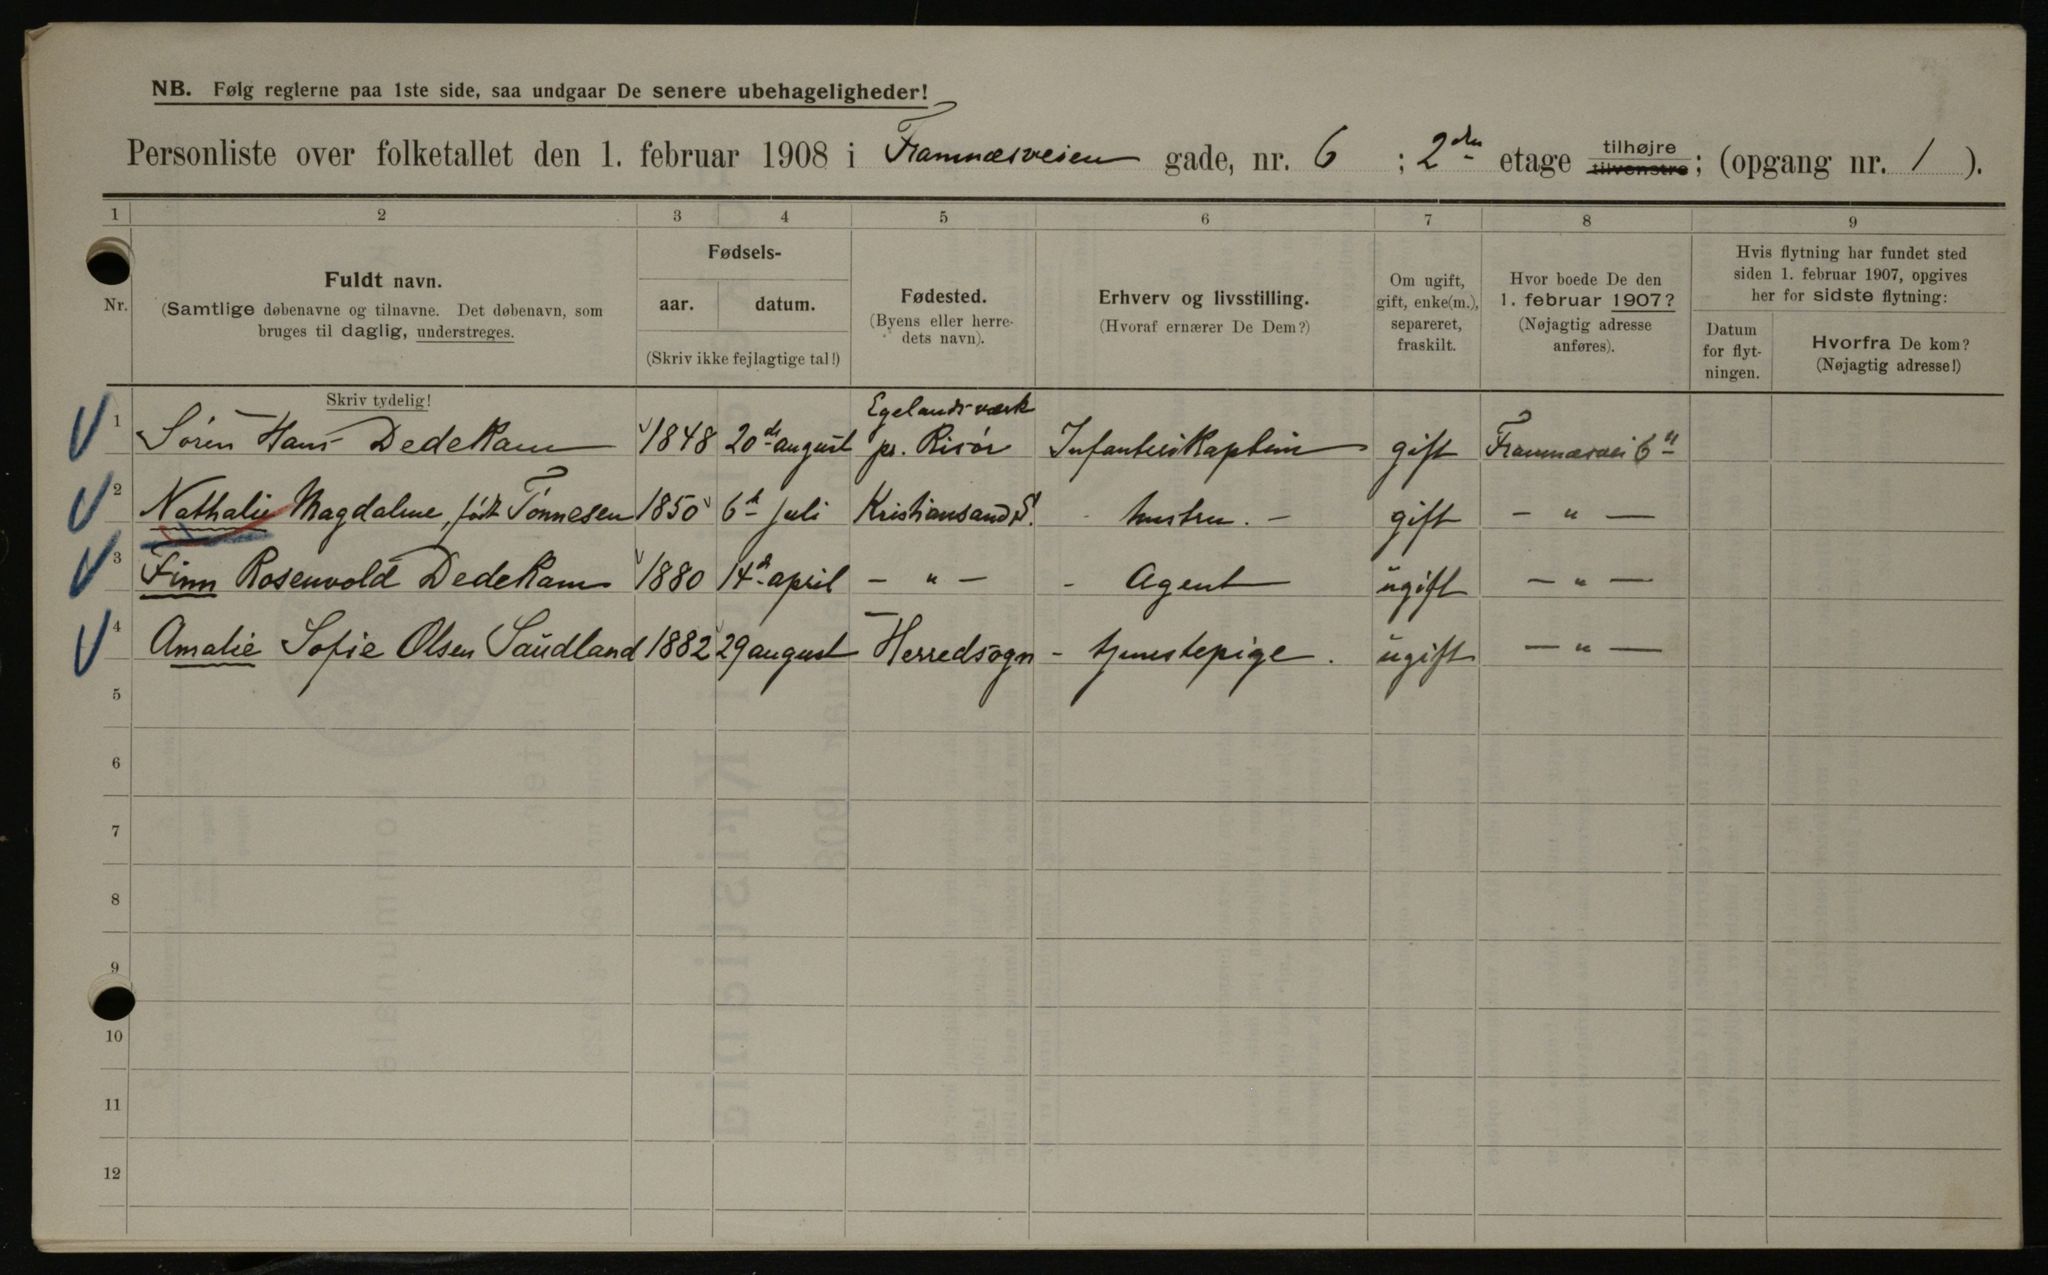 NB. Følg reglerne paa 1ste side, saa undgaar De senere ubehageligheder!
Personliste over folketallet den 1. februar 1908 i Framnæsveien gade, nr. 6 ; 2den etage tilhøjre tilvenstre; (opgang nr. 1 ).
1 2 3 4 5 6 7 8 9
Nr.
Fuldt navn.
(Samtlige døbenavne og tilnavne. Det døbenavn, som
bruges til daglig, understreges.
Skriv tydelig!
Fødsels-
aar. datum.
(Skriv ikke fejlagtige tal!)
Fødested.
(Byens eller herre-
dets navn).
Erhverv og livsstilling.
(Hvoraf ernærer De Dem?)
Om ugift,
gift, enke(m.),
separeret,
fraskilt.
Hvor boede De den
1. februar 1907?
(Nøjagtig adresse
anføres).
Hvis flytning har fundet sted
siden 1. februar 1907, opgives
her for sidste flytning:
Datum
for flyt-
ningen.
Hvorfra De kom?
(Nøjagtig adresse!)
Egelandsværk
1 Søren Hans Dedekam 1848 20de august pr. Risør Infanterikaptein gift Framnæsvei 6
2 Nathalie Magdalene, født Tønnesen 1850 6te juli Kristiansand S. - hustru. - gift - " -
3 Finn Rosenvold Dedekam 1880 14de april - " - - Agent ugift - " -
4 Amalie Sofie Olsen Saudland 1882 29 august Herredsogn - tjenestepige. ugift - " -
5
6
7
8
9
10
11
12